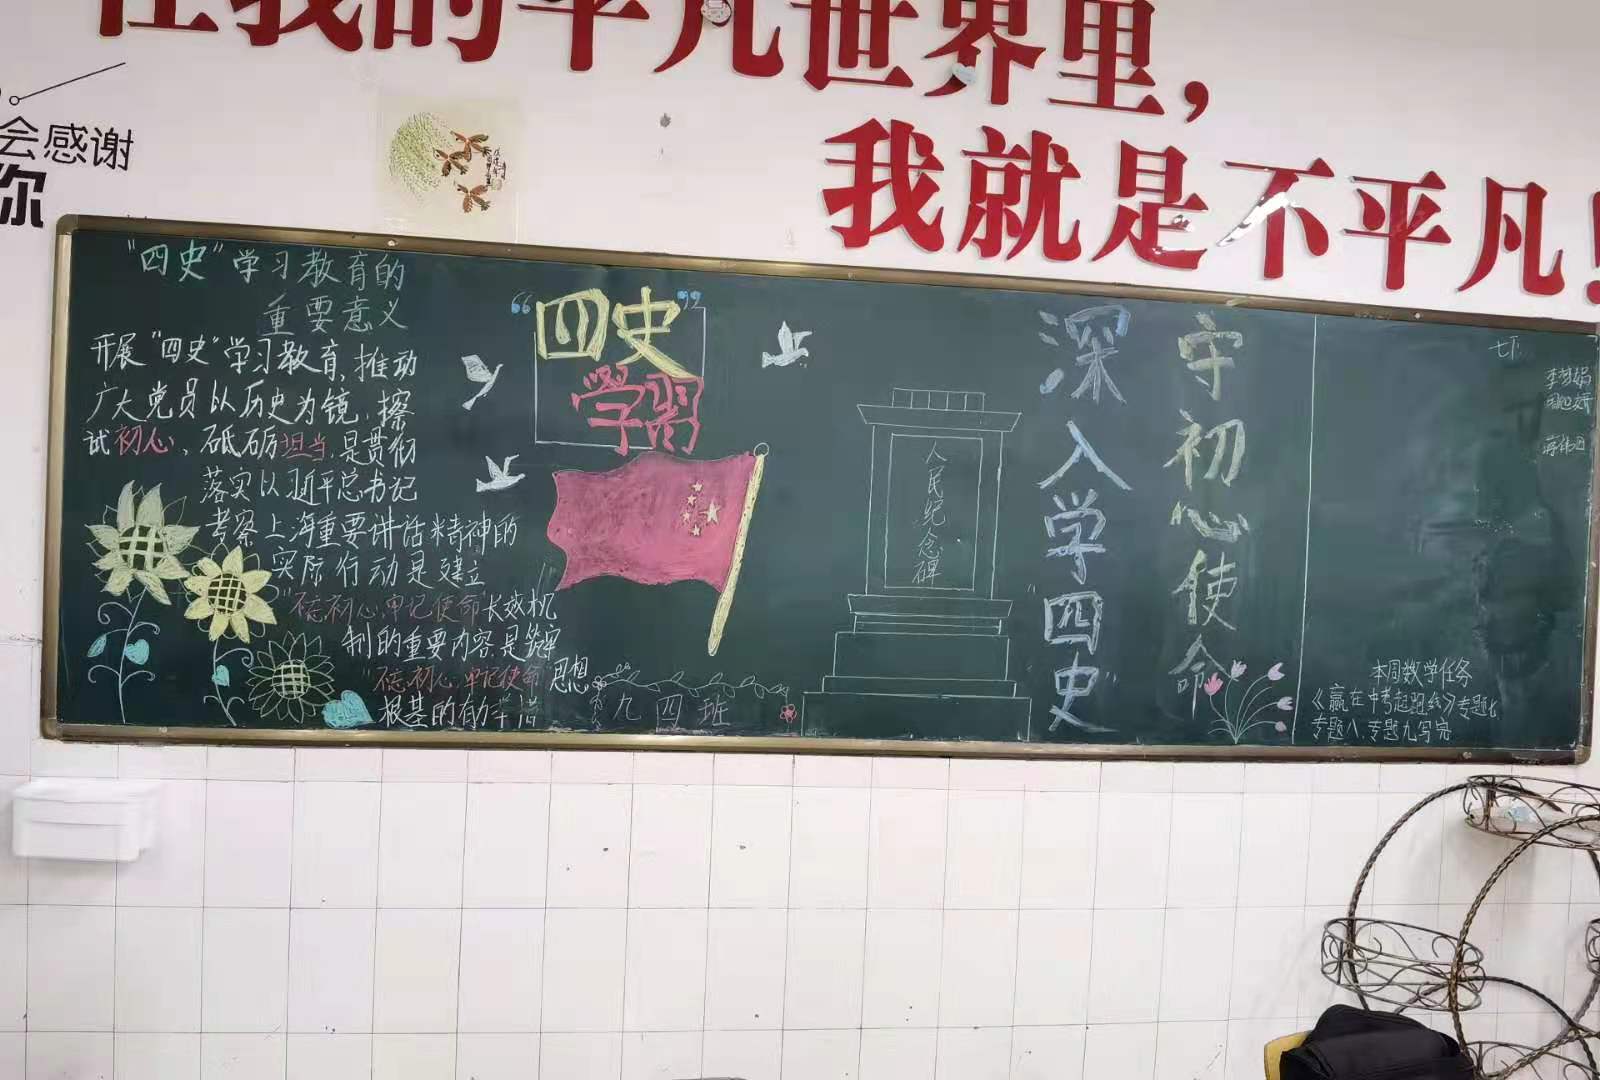 在我的平凡世界里，
我就是不平凡！
会感谢
你
“四史”学习教育的
重要意义
开展“四史”学习教育，推动
广大党员以历史为镜，擦
试初心、砥砺担当，是贯彻
落实以习近平总书记
考察上海重要讲话精神的
实际行动是建立
“不忘初心，牢记使命”长效机
制的重要内容，是筑牢
“不忘初心，牢记使命”思想
根基的有功举措
“四史”
学習
九四班
人民纪念碑
深入学“四史”
守初心使命
本周数学任务
《赢在中考起跑线》专题七
专题八、专题九写完